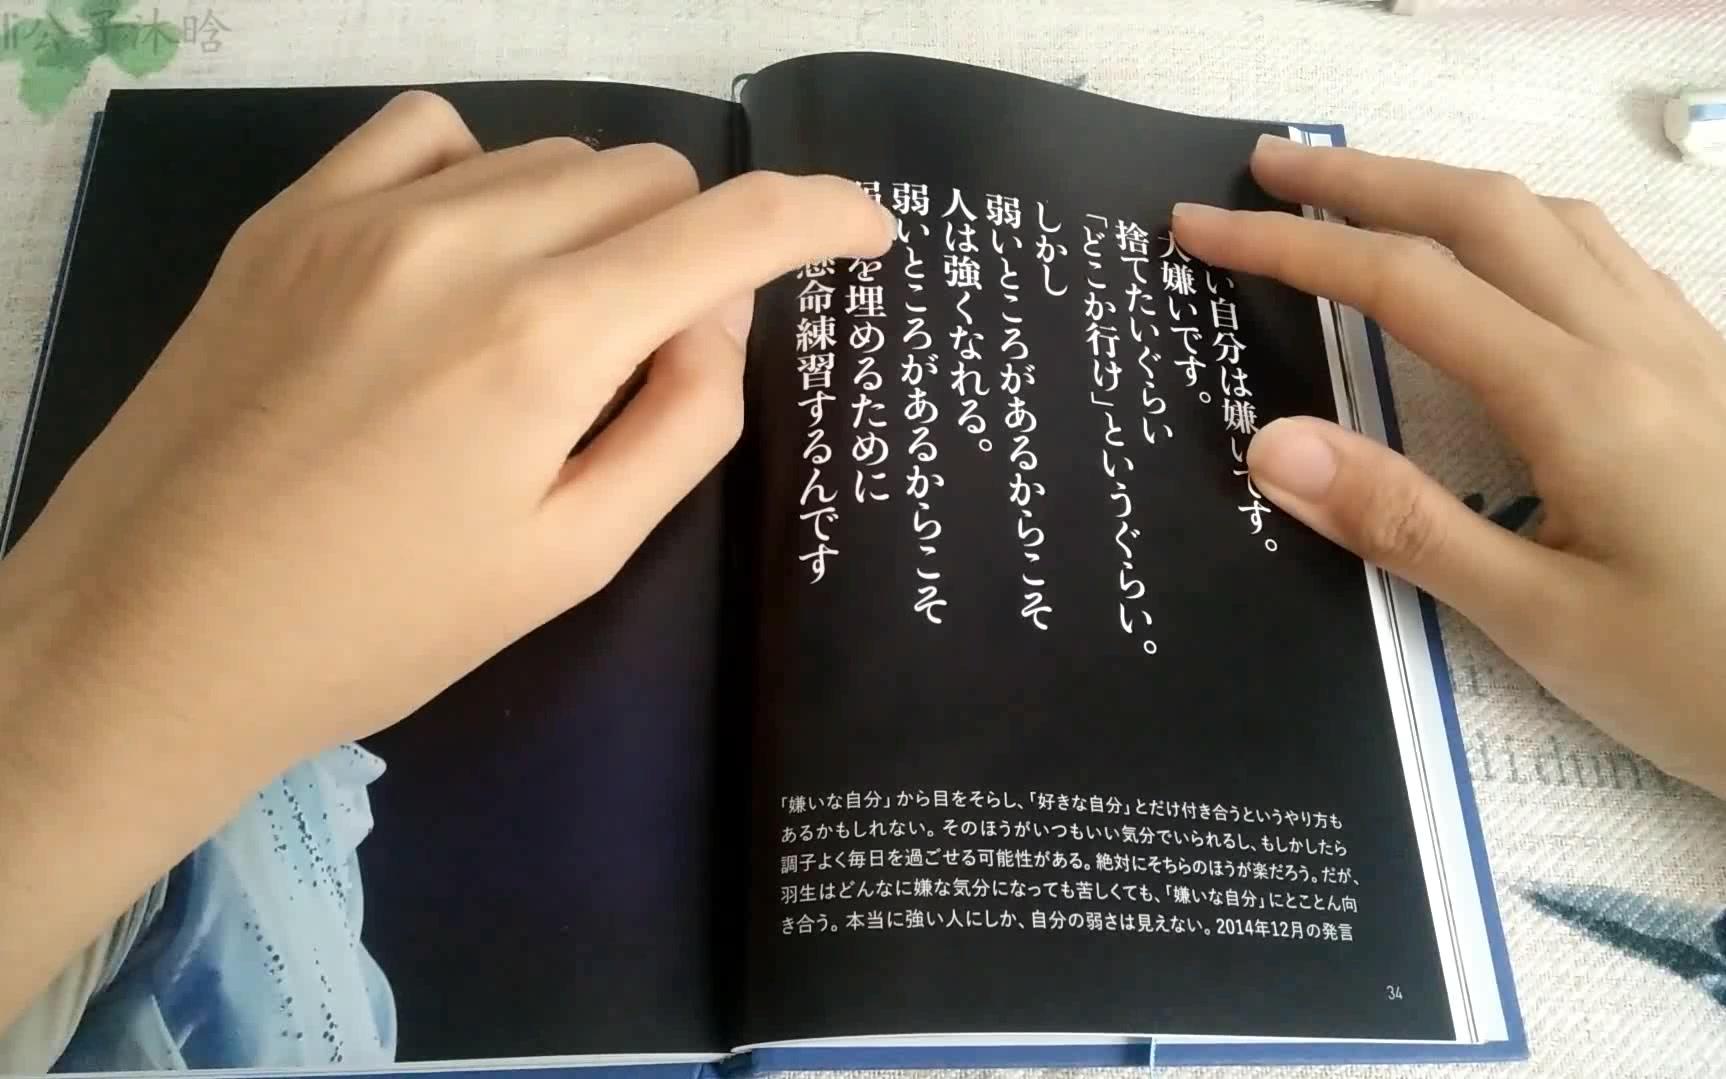 公子沐晗
い自分は嫌いです。
大嫌いです。
捨てたいぐらい
「どこか行け」というぐらい。
しかし
弱いところがあるからこそ
人は強くなれる。
弱いところがあるからこそ
を埋めるために
懸命練習するんです
「嫌いな自分」から目をそらし、「好きな自分」とだけ付き合うというやり方も
あるかもしれない。そのほうがいつもいい気分でいられるし、もしかしたら
調子よく毎日を過ごせる可能性がある。絶対にそちらのほうが楽だろう。だが、
羽生はどんなに嫌な気分になっても苦しくても、「嫌いな自分」にとことん向
き合う。本当に強い人にしか、自分の弱さは見えない。2014年12月の発言
34